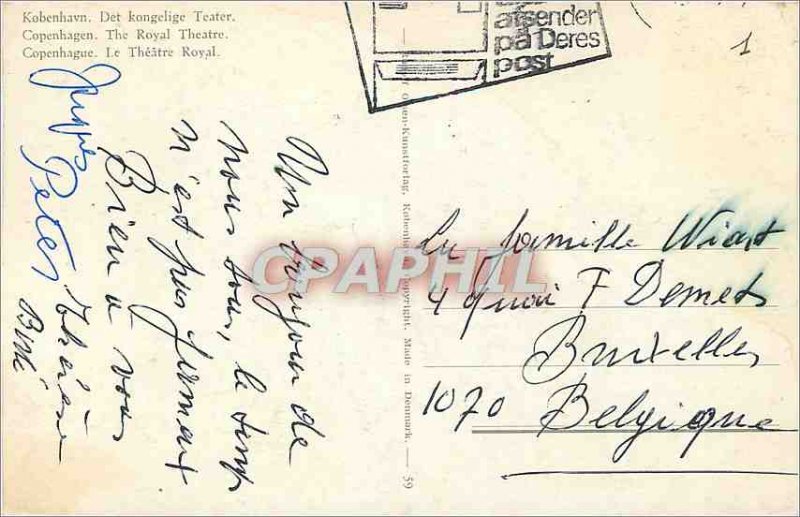 København. Det kongelige Teater.
Copenhagen. The Royal Theatre.
Copenhague. Le Théâtre Royal.
afsender
på Deres
post
1
Un bonjour de
nous tous, le temps
n'est pas forment
Bien à vous
Thérèse
Peter
La famille Wiart
4 Quai F Demets
Bruxelles
1070 Belgique
Kunstforlag, København. Copyright. Made in Denmark. — 59
CPAPHIL